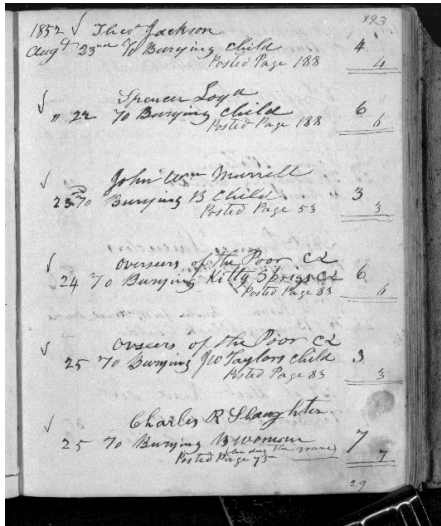 823
1852 √ Theo^s Jackson
Aug^t 23^rd To Burying child 4
Posted Page 188 4
√ Spencer Loyd
" 22 To Burying child 6
Posted Page 188 6
√ John W^m Murrell
23 To Burying B Child 3
Posted Page 53 3
√ overseers of the Poor
24 To Burying Kitty Sprigs 6
Posted Page 83 6
√ Overseers of the Poor
25 To Burying J W Taylors child 3
Posted Page 83 3
√ Charles R Slaughter
25 To Burying B woman 7
Posted Page 7
29